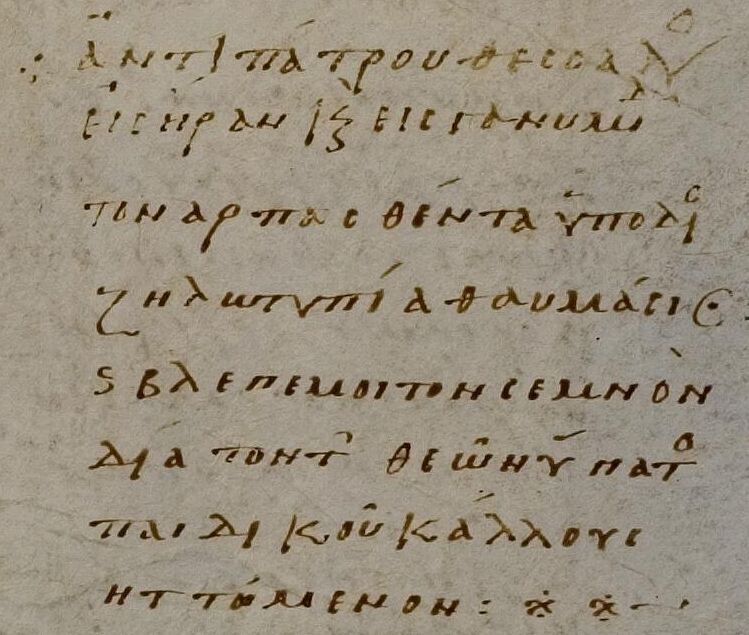 ἀντιπάτρου θεσσαλο
εἰς ἥραν κς εἰς γανυμηδ
τὸν ἁρπασθέντα ὑπὸ διο
ζηλωτυπία θαυμάσι
ς βλέπε μοι τὸν σεμνὸν
δία τὸν τ θεῶν ὕπατο
παιδικοῦ κάλλους
ἡττόμενον : ※ ※